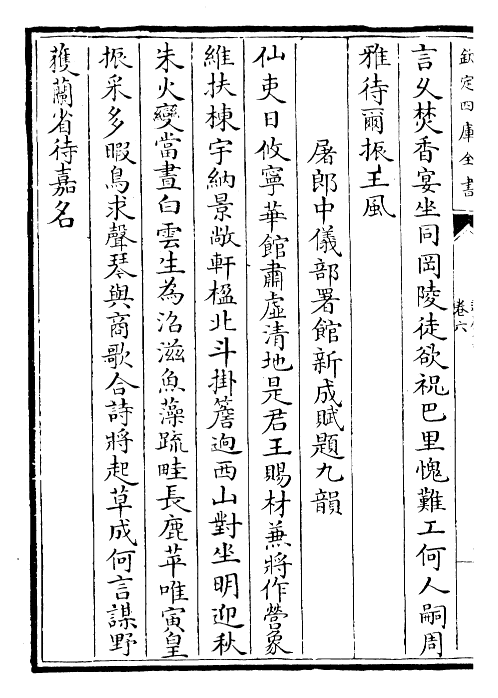 欽定四庫全書
卷六
言乆焚香宴坐同岡陵徒欲祝巴里愧難工何人嗣周
雅待爾振王風
屠郎中儀部署館新成賦題九韻
仙吏日攸寧華館肅虛清地是君王賜材兼將作營象
維扶棟宇納景敞軒楹北斗掛簷逈西山對坐明迎秋
朱火變當晝白雲生為沼滋魚藻疏畦長鹿苹唯寅皇
振采多暇鳥求聲琴與商歌合詩將起草成何言謀野
獲蘭省待嘉名